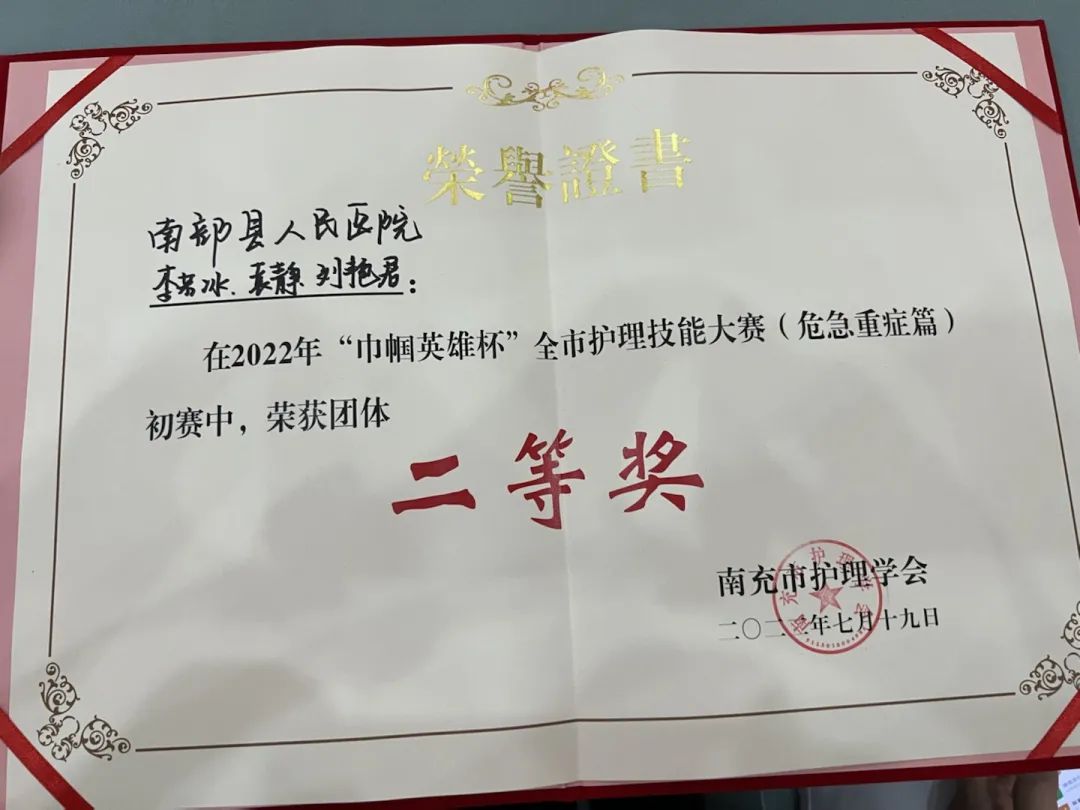 榮譽證書
南部县人民医院
李 冰、袁静、刘艳君：
在2022年“巾帼英雄杯”全市护理技能大赛（危急重症篇）
初赛中，荣获团体
二等奖
南充市护理学会
二〇二二年七月十九日